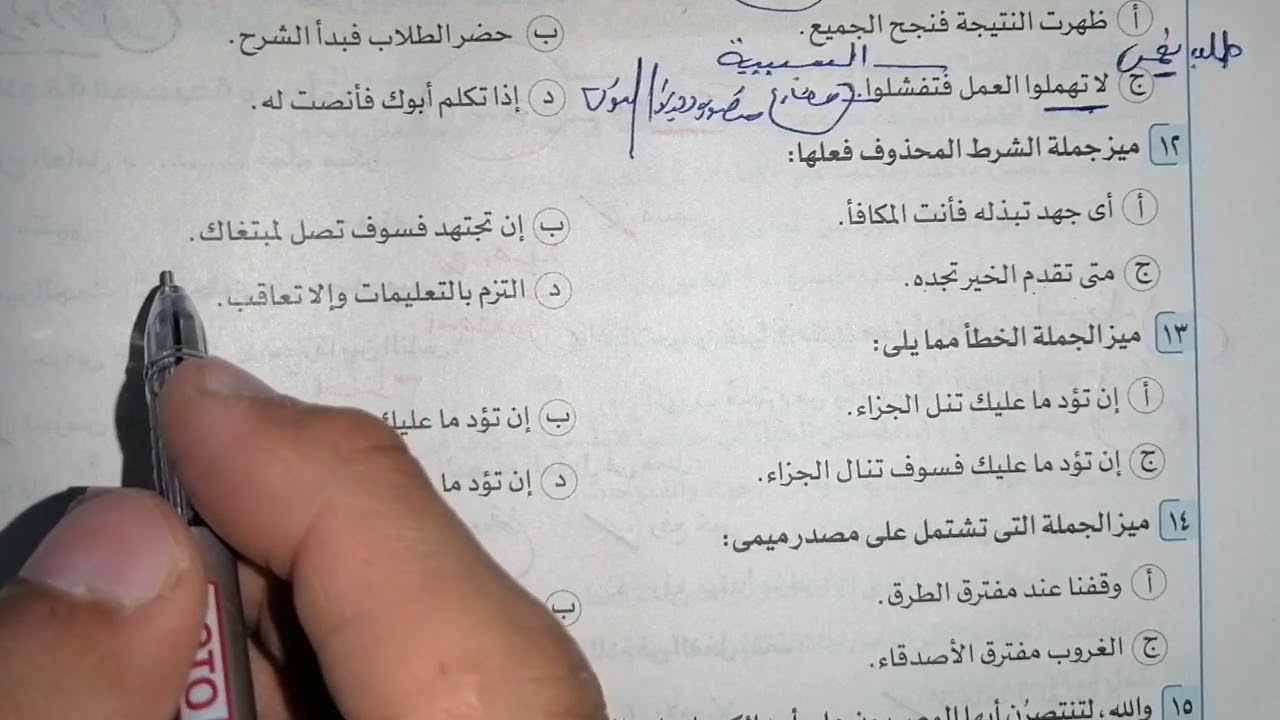 أ ظهرت النتيجة فنجح الجميع.
ب حضر الطلاب فبدأ الشرح.
طلب نهى السببية
ج لا تهملوا العمل فتفشلوا.
د إذا تكلم أبوك فأنصت له.
١٢ ميز جملة الشرط المحذوف فعلها:
أ أى جهد تبذله فأنت المكافأ.
ب إن تجتهد فسوف تصل لمبتغاك.
ج متى تقدم الخير تجده.
د التزم بالتعليمات وإلا تعاقب.
١٣ ميز الجملة الخطأ مما يلى:
أ إن تؤد ما عليك تنل الجزاء.
ب إن تؤد ما عليك
ج إن تؤد ما عليك فسوف تنال الجزاء.
د إن تؤد ما
١٤ ميز الجملة التى تشتمل على مصدر ميمى:
أ وقفنا عند مفترق الطرق.
ب
ج الغروب مفترق الأصدقاء.
١٥ والله، لتنتصرُن أيها المصريون